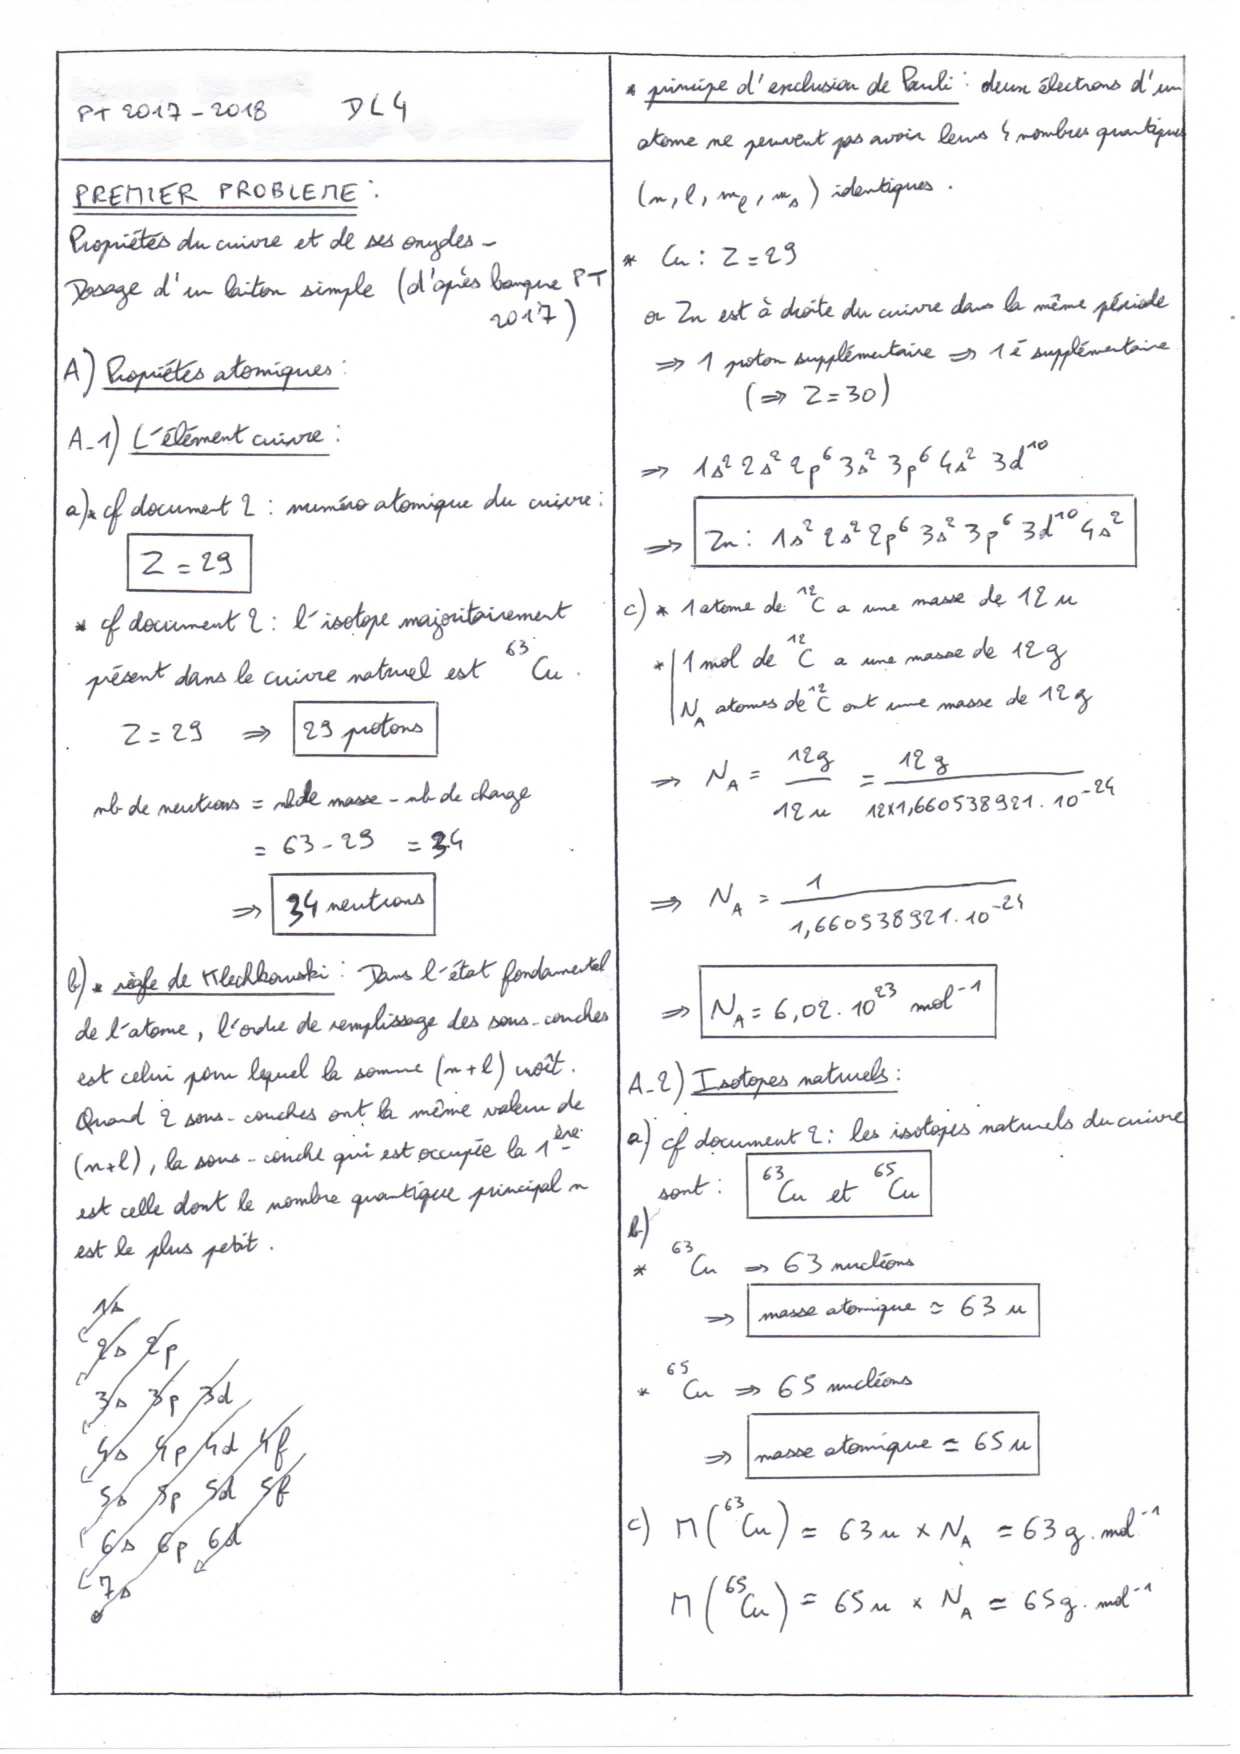 PT 2017-2018 DL4
PREMIER PROBLEME :
Propriétés du cuivre et de ses oxydes -
Dosage d'un laiton simple (d'après banque PT
2017)
A) Propriétés atomiques :
A_1) L'élément cuivre :
a)* cf document 2 : numéro atomique du cuivre :
Z = 29
* cf document 2 : l'isotope majoritairement
présent dans le cuivre naturel est ⁶³Cu.
Z = 29 ⇒ 29 protons
nb de neutrons = nb de masse - nb de charge
= 63 - 29 = 34
⇒ 34 neutrons
b)* règle de Klechkowski : Dans l'état fondamental
de l'atome, l'ordre de remplissage des sous-couches
est celui pour lequel la somme (n+l) croît.
Quand 2 sous-couches ont la même valeur de
(n+l), la sous-couche qui est occupée la 1ère
est celle dont le nombre quantique principal n
est le plus petit.
1s
2s 2p
3s 3p 3d
4s 4p 4d 4f
5s 5p 5d 5f
6s 6p 6d
7s
* principe d'exclusion de Pauli : deux électrons d'un
atome ne peuvent pas avoir leurs 4 nombres quantiques
(n, l, m_l, m_s) identiques.
* Cu : Z = 29
or Zn est à droite du cuivre dans la même période
⇒ 1 proton supplémentaire ⇒ 1 é supplémentaire
(⇒ Z = 30)
⇒ 1s² 2s² 2p⁶ 3s² 3p⁶ 4s² 3d¹⁰
⇒ Zn : 1s² 2s² 2p⁶ 3s² 3p⁶ 3d¹⁰ 4s²
c) * 1 atome de ¹²C a une masse de 12 u
* 1 mol de ¹²C a une masse de 12g
N_A atomes de ¹²C ont une masse de 12g
⇒ N_A = 12g / 12u = 12g / 12×1,660538921.10⁻²⁴
⇒ N_A = 1 / 1,660538921.10⁻²⁴
⇒ N_A = 6,02.10²³ mol⁻¹
A_2) Isotopes naturels :
a) cf document 2 : les isotopes naturels du cuivre
sont : ⁶³Cu et ⁶⁵Cu
b)
* ⁶³Cu ⇒ 63 nucléons
⇒ masse atomique ≃ 63 u
* ⁶⁵Cu ⇒ 65 nucléons
⇒ masse atomique ≃ 65 u
c) M(⁶³Cu) ≃ 63u × N_A ≃ 63 g.mol⁻¹
M(⁶⁵Cu) ≃ 65u × N_A ≃ 65g.mol⁻¹